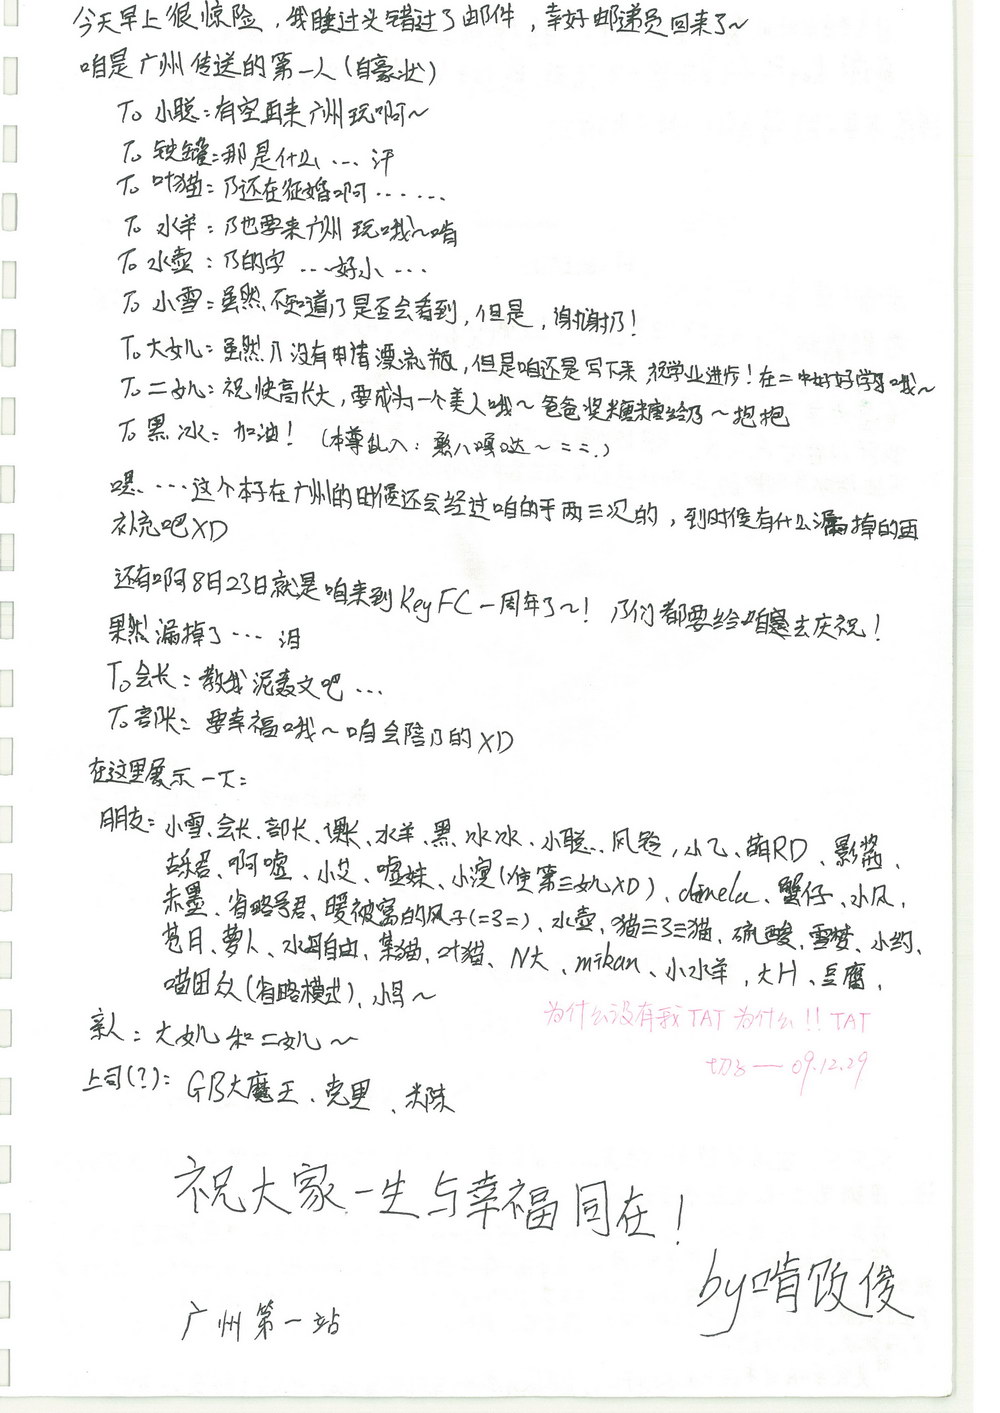 今天早上很惊险，我睡过头错过了邮件，幸好邮递员回来了~
咱是广州传送的第一人（自豪状）
To 小聪：有空再来广州玩啊~
To 铁罐：那是什么…汗
To 叶猫：乃还在征婚啊……
To 水羊：乃也要来广州玩哦~啃
To 水壶：乃的字…好小…
To 小雪：虽然不知道乃是否会看到，但是，谢谢乃！
To 大女儿：虽然乃没有申请漂流瓶，但是咱还是写下来 祝学业进步！在二中好好学习哦~
To 二女儿：祝快高长大，要成为一个美人哦~爸爸奖糖糖给乃~抱抱
To 黑冰：加油！（本尊乱入：八嘎哒~==.）
嗯…这个本子在广州的时候还会经过咱的手两三次的，到时侯有什么漏掉的再
补充吧XD
还有啊8月23日就是咱来到KeyFC一周年了~！乃们都要给咱去庆祝！
果然漏掉了… 泪
To 会长：教我泥轰文吧…
To 部长：要幸福哦~咱会陪乃的XD
在这里展示一下：
朋友：小雪、会长、部长、课长、水羊、黑、冰冰、小聪、风铃，小乙、萌RD、影酱、
君、啊嘘、小艾、嘘妹、小溟（使第三女儿XD）、dimela、蟹仔、小风，
赤墨、省略号君、暖被窝的风子（=3=），水壶，猫三3三猫，硫酸，雪梦，小约，
苍月、萝卜、水母自由，某猫，叶猫、N大、mikan、小水羊，大H、豆腐，
喵田众（省略模式），小~
亲人：大女儿和二女儿~
上司(?)：GB大魔王、克里、米陈
为什么没有我TAT为什么!!TAT
切—09.12.29
祝大家一生与幸福同在！
by啃馍俊
广州第一站